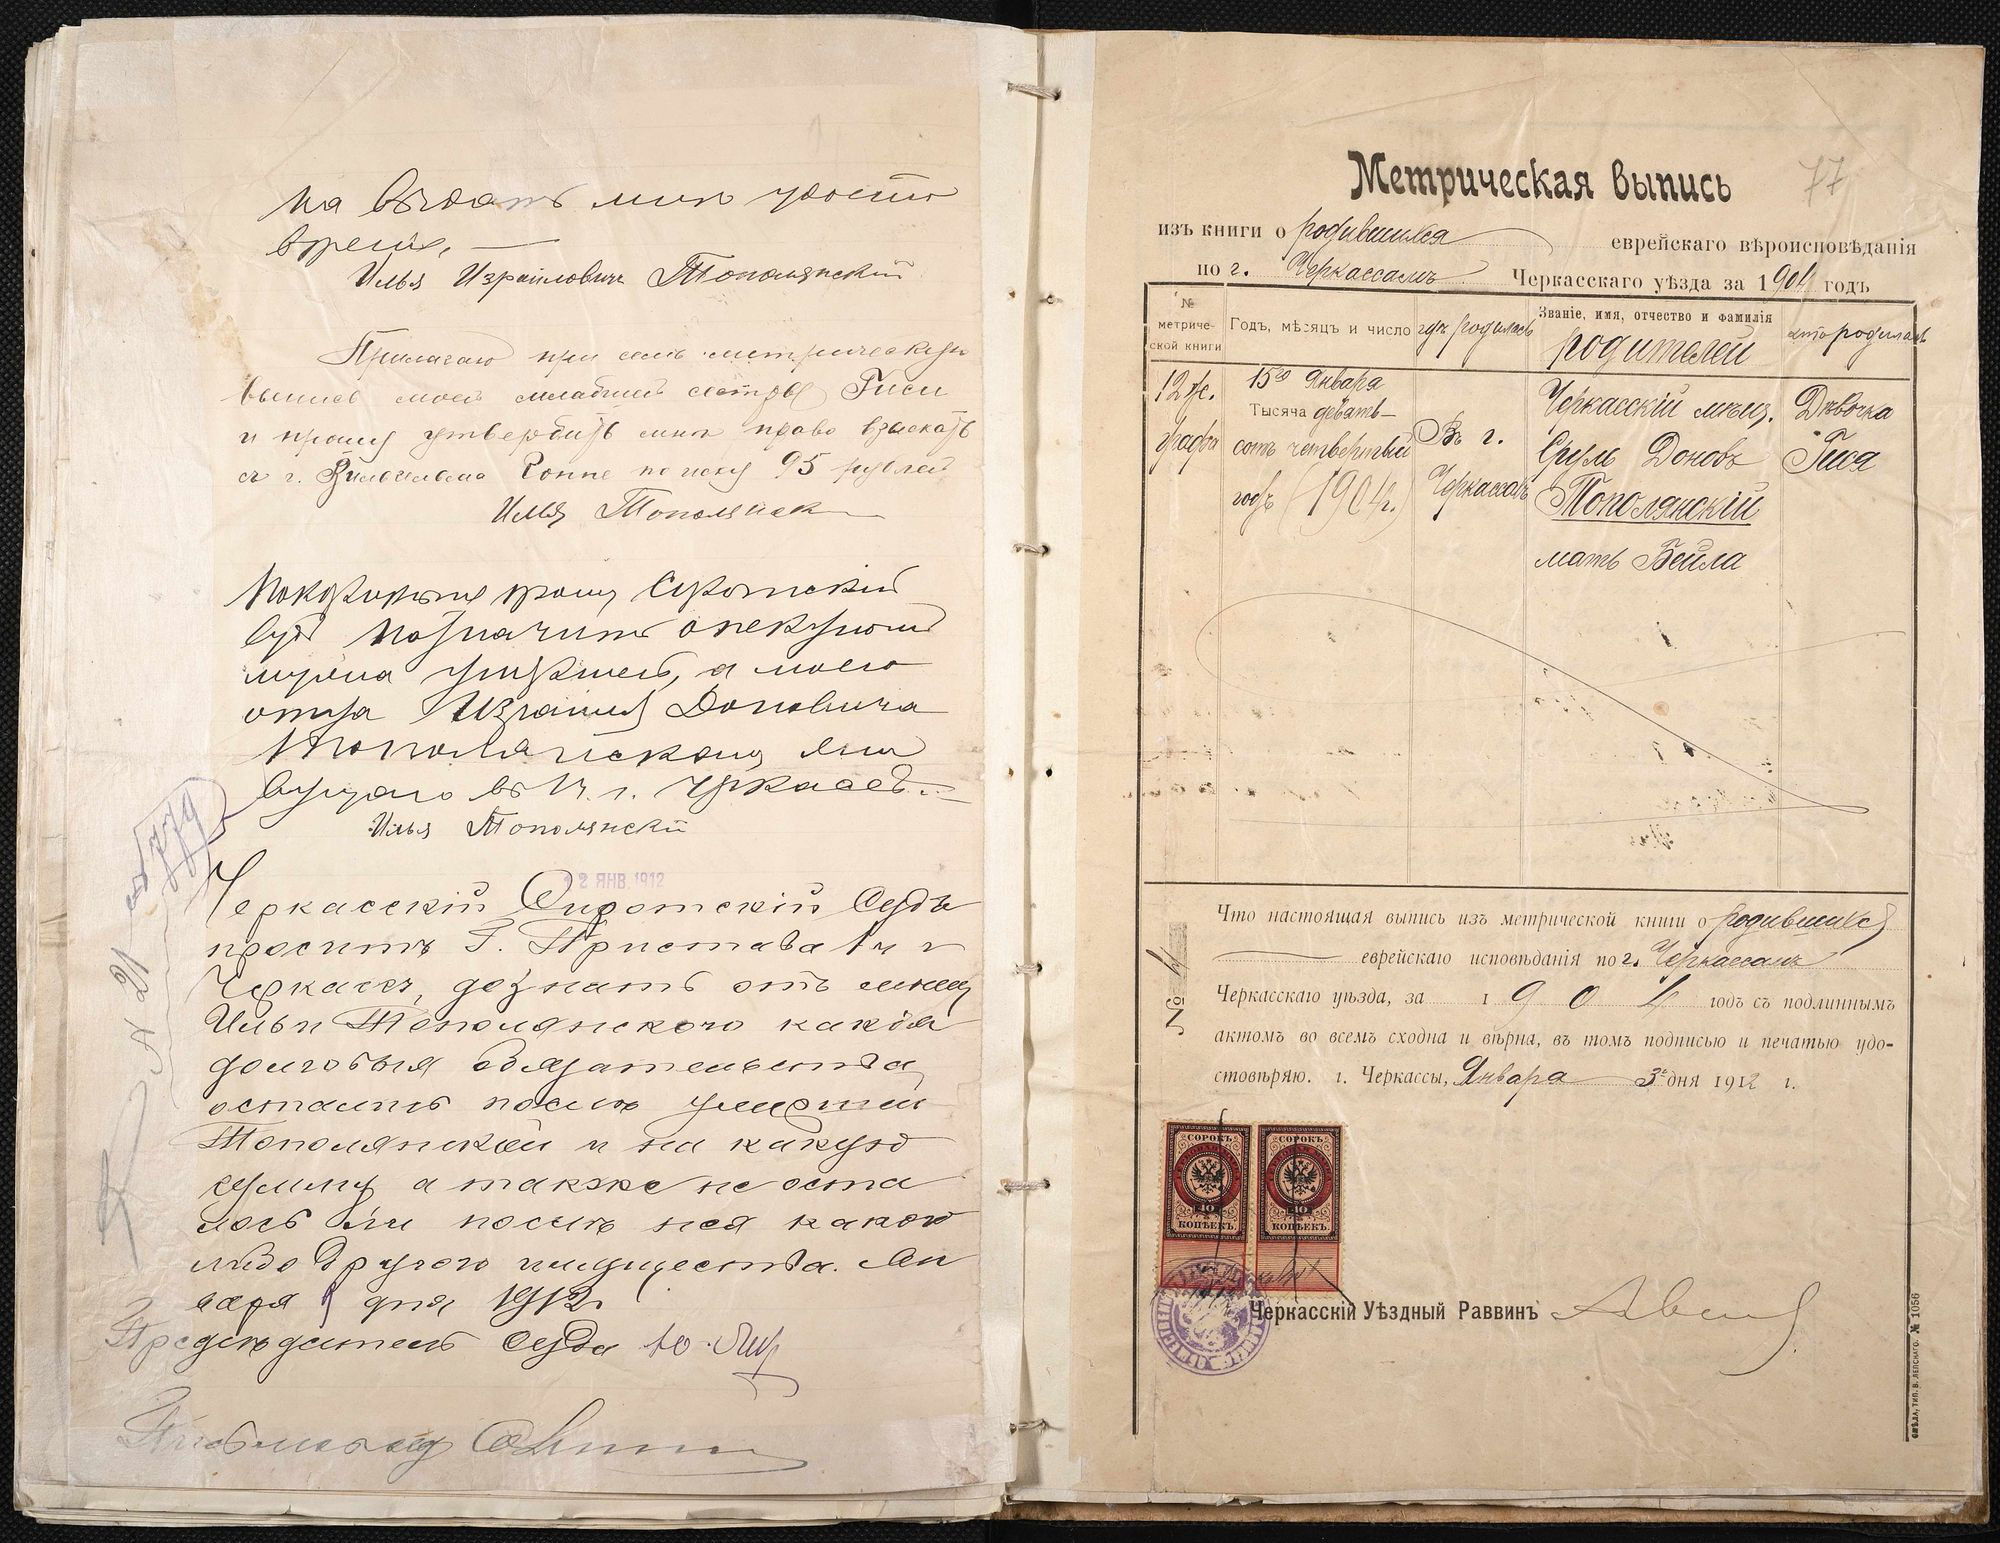 на выдать мнѣ удосто
вренiе.
Илья Израиловичъ Тополянскiй
Прилагаю при семъ метрическую
выпись моей младшей сестры Гиси
и прошу утвердить мнѣ право взыскать
съ г. Вильгельма Гоппе по иску 95 рублей
Илья Тополянск
Покорнѣйше прошу Сиротскiй
Суд назначить опекуном
мужа умершей, а моего
отца Израиля Доновича
Тополянскаго, жи
вущаго въ г. Черкассъ.
Илья Тополянскiй
№ 21
779
12 ЯНВ. 1912
Черкасскiй Сиротскiй Судъ
проситъ Г. Пристава 1 ч г
Черкассъ, дознать отъ мѣщ
Ильи Тополянского какiя
долговыя обязательства
остались послѣ умершей
Тополянской и на какую
сумму а также не оста
лось ли послѣ нея какого
либо другого имущества. Ян
варя 9 дня 1912 г.
Предсѣдатель Суда
Письмовод

77
Метрическая выпись
изъ книги о родившихся еврейскаго вѣроисповѣданiя
по г. Черкассамъ Черкасскаго уѣзда за 1904 годъ
№ метриче-ской книги
Годъ, мѣсяцъ и число
гдѣ родилась
Званiе, имя, отчество и фамилiя родителей
кто родилась
12 ж. графа
15го Января
Тысяча девять-
сотъ четвертый
годъ (1904 г.)
Въ г.
Черкассахъ
Черкасскiй мѣщ.
Срул Доновъ
Тополянскiй
мать Бейла
Дѣвочка
Гися
Что настоящая выпись изъ метрической книги о родившихся
еврейскаго исповѣданiя по г. Черкассамъ
Черкасскаго уѣзда, за 1904 годъ съ подлиннымъ
актомъ во всемъ сходна и вѣрна, въ томъ подписью и печатью удо-
стовѣряю. г. Черкассы, Января 3 дня 1912 г.
№
СОРОКЪ
40
КОПѢЕКЪ.
СОРОКЪ
40
КОПѢЕКЪ.
Черкасскiй Уѣздный Раввинъ
СМѢЛА, ТИП. В. ЛЕПСКАГО. № 1056